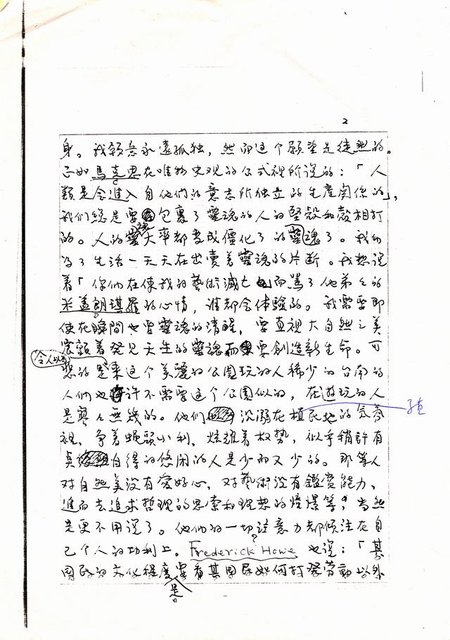 2
身。我願意永遠孤独,然而这个願望是徒然的。
正如馬克思在唯物史观的公式裡所說的:「人
類是会進入自他們的意志所独立的生產関係的」,
我們総是要包裹了靈魂的人的堅殼和殼相打
的。人的靈魂大率都変成僵化了的靈魂了。我們
為了生活一天天在出賣着靈魂的片断。我想說
着「你們在使我的藝術滅亡」而罵了他弟々的
米盖朗琪羅的心情,誰都会体驗的。我需要即
使在瞬間也要靈魂的清醒,要直視大自然之美
著發見天生的靈魂而要創造新生命。可
悲的是来这个美麗的公園玩的人稀少的台南的
令人以
人們也許不需要这个公園似的,在遊玩的人
是寥々無幾的。他們沉溺在植民地的
視,爭着蠅頭小利,炫耀着权势,似乎稍許有
真自得的悠闲的人是少而又少的。那等人
对自然美没有愛好心,对藝術没有鑑賞能力,
進而去追求哲理的思索和理想的憧憬等,当然
是更不用說了。他們的一切注意力都傾注在自
己个人的功利上。Frederick Howe 也說:「某
國民的文化程度要看其国民如何打發劳动以外
是